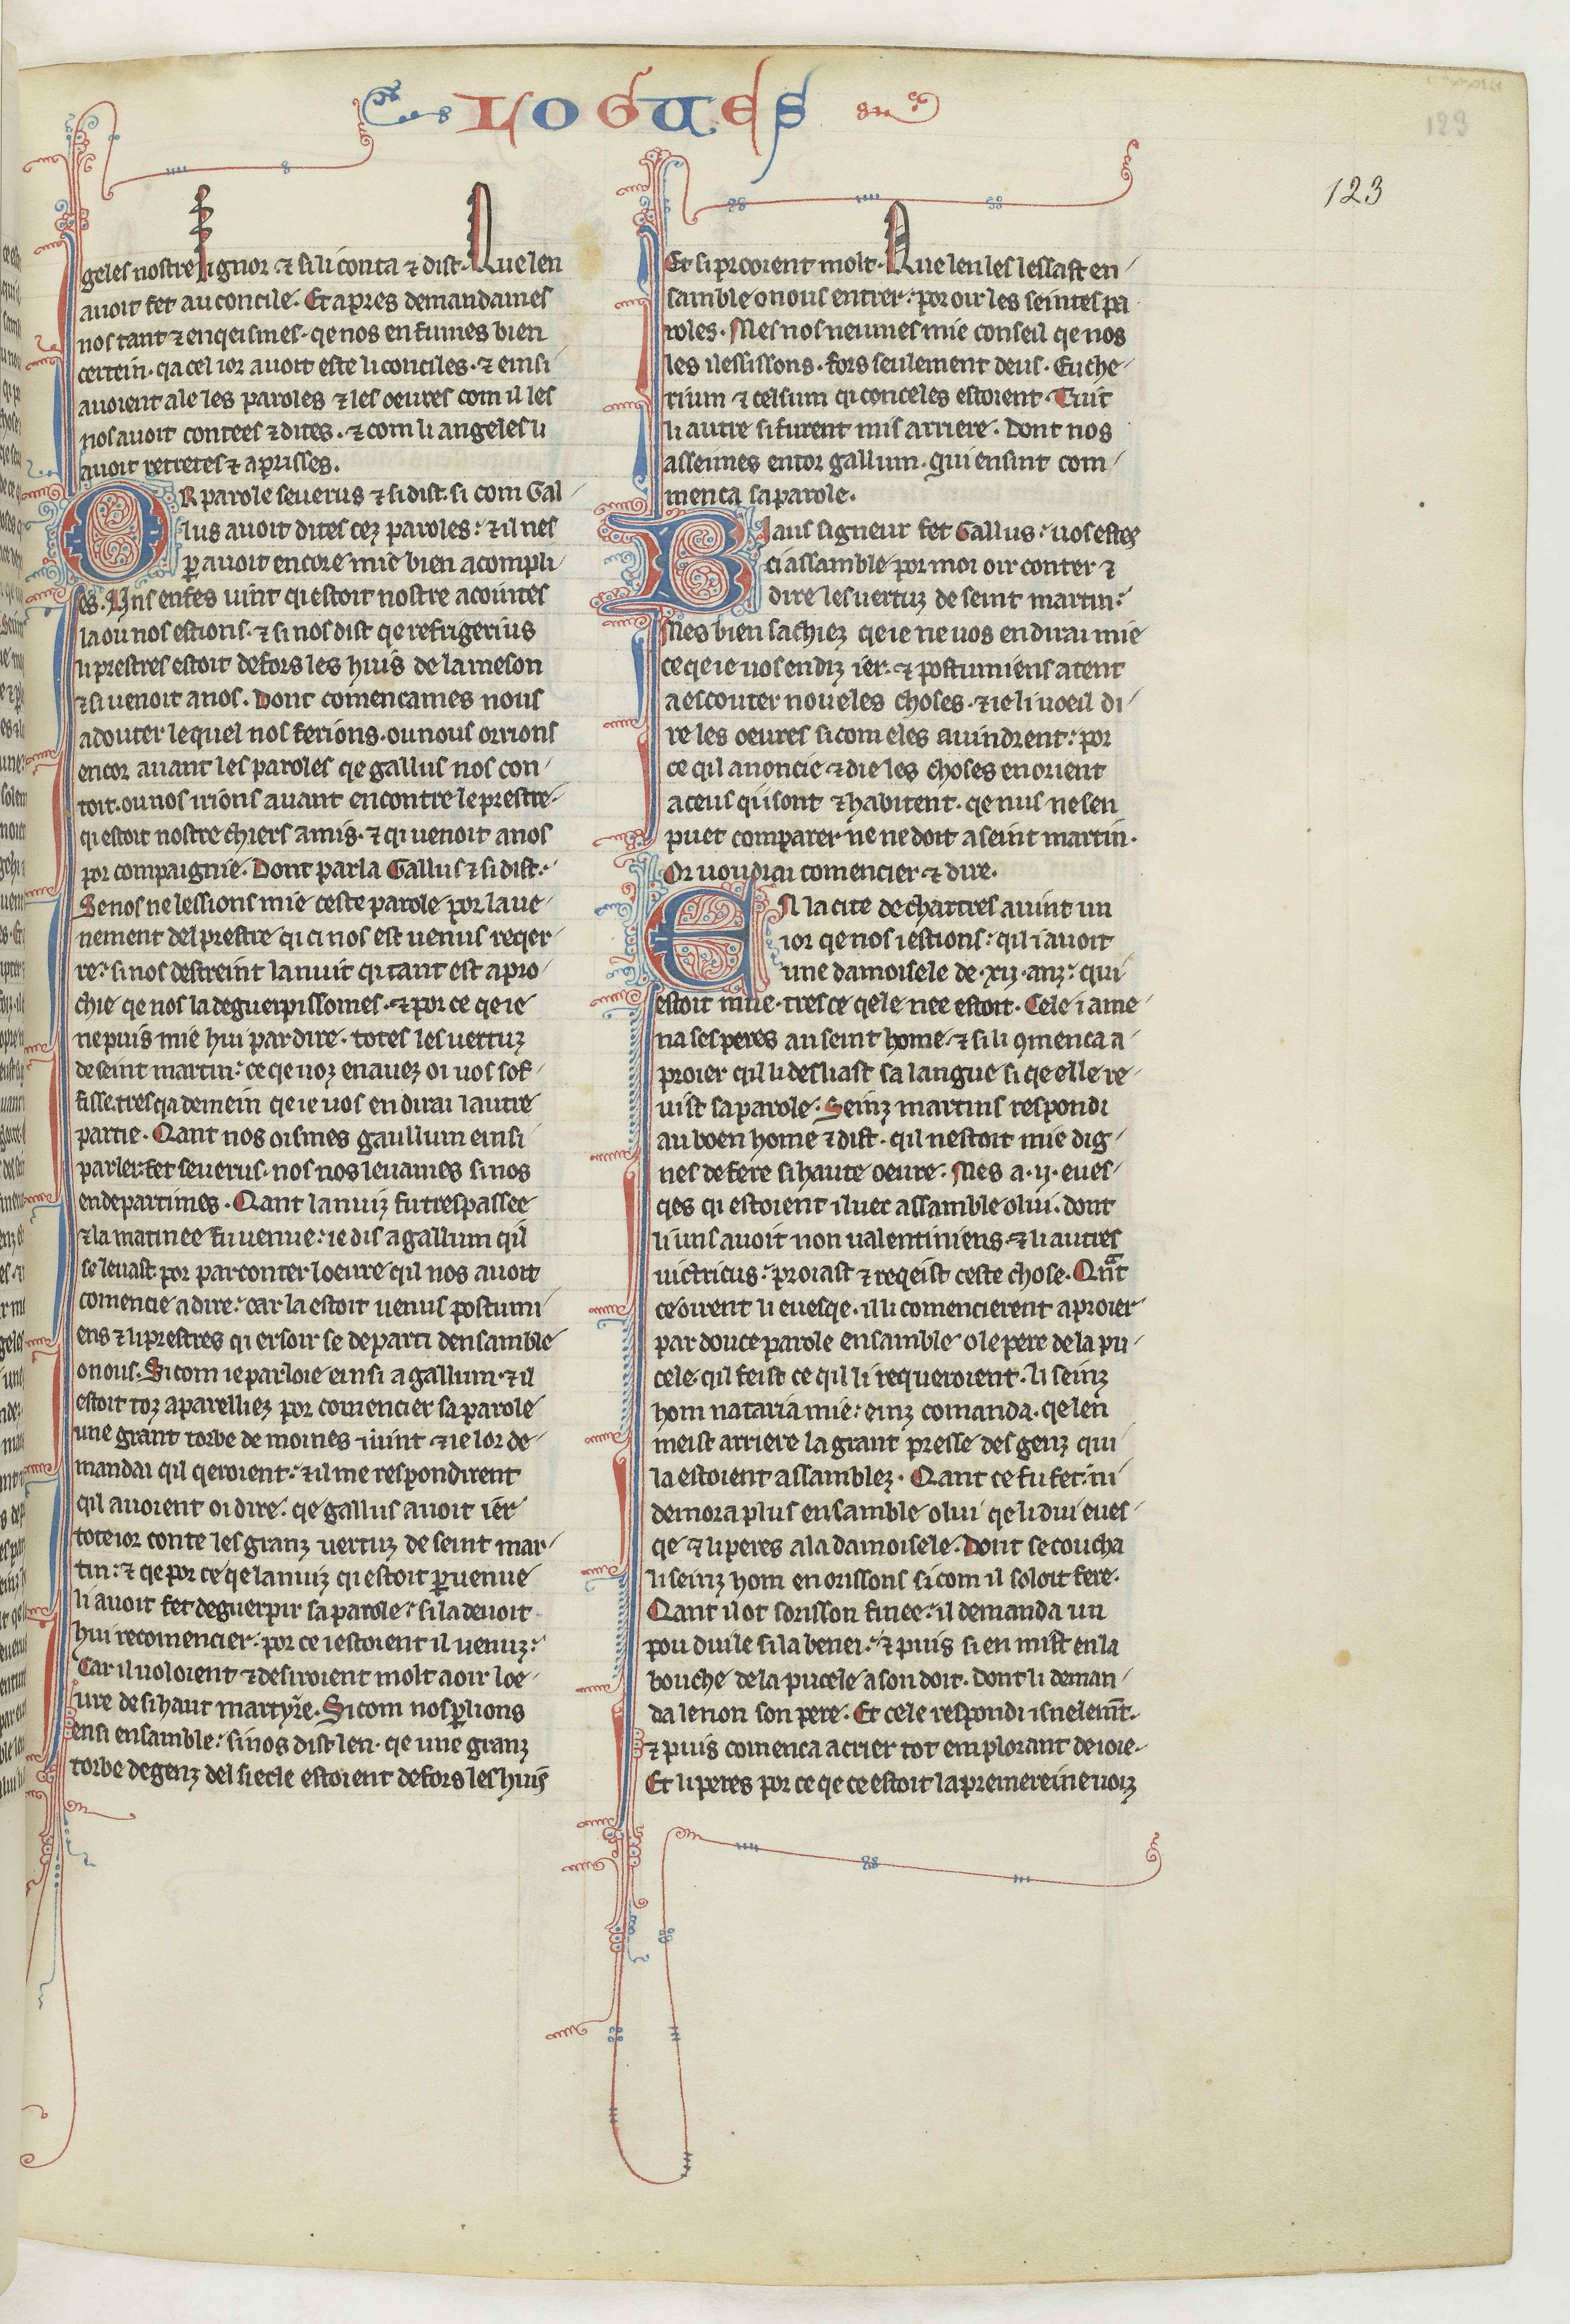 LOGUES
123
123
geles nostre signor ⁊ si li conta ⁊ dist. Que len
auoit fet au concile. Et apres demandames
nos tant ⁊ enqeismes. qe nos en fumes bien
certein. qa cel ior auoit este li conciles. ⁊ einsi
auoient ale les paroles ⁊ les oeures com il les
nos auoit contees ⁊ dites. ⁊ com li angeles li
auoit retretes ⁊ aprisses.
OR parole seuerus ⁊ si dist. si com Gal
lus auoit dites cez paroles: ⁊ il nes
ꝑ auoit encore mie bien acompli
es. Uns enfes uint qi estoit nostre acointes
la ou nos estions. ⁊ si nos dist qe refrigerius
li prestres estoit defors les huis de la meson
⁊ si uenoit a nos. Dont comencames nous
a douter le quel nos ferions. ou nous orrions
encor auant les paroles qe gallus nos con
toit. ou nos irions auant encontre le prestre.
qi estoit nostre chiers amis. ⁊ qi uenoit a nos
por compaignie. Dont parla Gallus ⁊ si dist.
Se nos ne lessions mie ceste parole por laue
nement del prestre qi ci nos est uenus reqer
re: si nos destreint la nuit qi tant est apro
chie qe nos la deguerpissomes. ⁊ por ce qe ie
ne puis mie hui par dire. totes les uertuz
de seint martin: ce qe uoz en auez oi uos sof
fisse. tresqa demein qe ie uos en dirai lautre
partie. Qant nos oismes gaullum einsi
parler. fet seuerus. nos nos leuames si nos
en departimes. Qant la nuiz fu trespassee
⁊ la matinee fu uenue: ie dis a gallum qil
se leuast por par conter loeure qil nos auoit
comencie a dire: car la estoit uenus postumi
ens ⁊ li prestres qi ersoir se departi densamble
o nous. Si com ie parloie einsi a gallum. ⁊ il
estoit toz aparelliez por comencier sa parole
une grant torbe de moines i uint ⁊ ie lor de
mandai qil qeroient: ⁊ il me respondirent
qil auoient oi dire. qe gallus auoit ier
tote ior conte les granz uertuz de seint mar
tin: ⁊ qe por ce qe la nuiz qi estoit ꝑuenue
li auoit fet deguerpir sa parole: si la deuoit
hui recomencier. por ce i estoient il uenuz:
Car il uoloient ⁊ desiroient molt a oir loe
ure de si haut martyre. Si com nos ꝑlions
ensi ensamble: si nos dist len. qe une granz
torbe de genz del siecle estoient defors les huis
Et si proioient molt. Que len les lessast en
samble o nous entrer: por oir les seintes pa
roles. Mes nos neumes mie conseil qe nos
les i lessissons. fors seulement deus. Euche
rium ⁊ celsum qi conceles estoient. Tuit
li autre si furent mis arriere. Dont nos
asseimes entor gallum. qui ensint com
menca sa parole.
Biaus signeur fet Gallus: uos estez
ci assamble por moi oir conter ⁊
dire les uertuz de seint martin:
Mes bien sachiez qe ie ne uos en dirai mie
ce qe ie uos en diz ier. ⁊ postumiens atent
a escouter noueles choses. ⁊ ie li uoeil di
re les oeures si com eles auindrent: por
ce qil anoncie ⁊ die les choses en orient
a ceus qi i sont ⁊ habitent. qe nus ne sen
puet comparer ne ne doit a seint martin.
Or uoudrai comencier ⁊ dire.
EN la cite de chartres auint un
ior qe nos i estions: qil i auoit
une damoisele de .xij. anz: qui
estoit mue. tres ce qele nee estoit. Cele i ame
na ses peres au seint home. ⁊ si li ꝯmenca a
proier qil li desliast sa langue si qe elle re
uist sa parole. Seinz martins respondi
au boen home ⁊ dist. qil nestoit mie dig
nes de fere si haute oeure. Mes a .ij. eues
qes qi estoient iluec assamble o lui. dont
li uns auoit non ualentiniens. ⁊ li autres
uictricius: proiast ⁊ reqeist ceste chose. Qnᵃt
ce oirent li euesqe. il li comencierent a proier
par douce parole ensamble o le pere de la pu
cele. qil feist ce qil li requeroient. li seinz
hom nataria mie: einz comanda. qe len
meist arriere la grant presse des genz qui
la estoient assamblez. Qant ce fu fet: ni
demora plus ensamble o lui qe li dui eues
qe ⁊ li peres a la damoisele. Dont se coucha
li seinz hom en orissons si com il soloit fere.
Qant il ot sorisson finee: il demanda un
pou duile si la benei: ⁊ puis si en mist en la
bouche de la pucele a son doit. dont li deman
da le non son pere. Et cele respondi isnelemt̄.
⁊ puis comenca a crier tot em plorant de ioie.
Et li peres por ce qe ce estoit la premereine uoiz